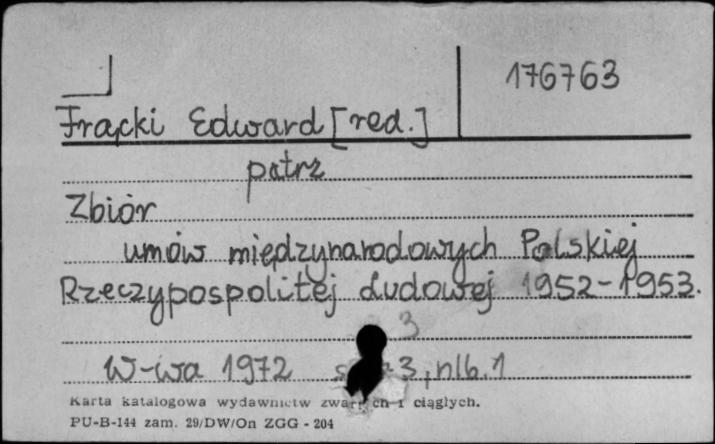 176763
Frącki Edward [red.]
patrz
Zbiór
umów międzynarodowych Polskiej
Rzeczypospolitej Ludowej 1952-1953.
3
W-wa 1972 s. 3, nlb. 1
Karta katalogowa wydawnictw zwartych i ciągłych.
PU-B-144 zam. 29/DW/On ZGG - 204